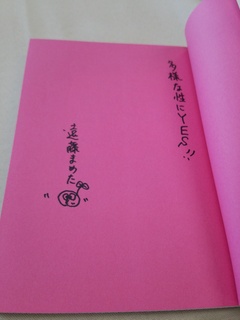 多様な性にYES!!
遠藤まめた